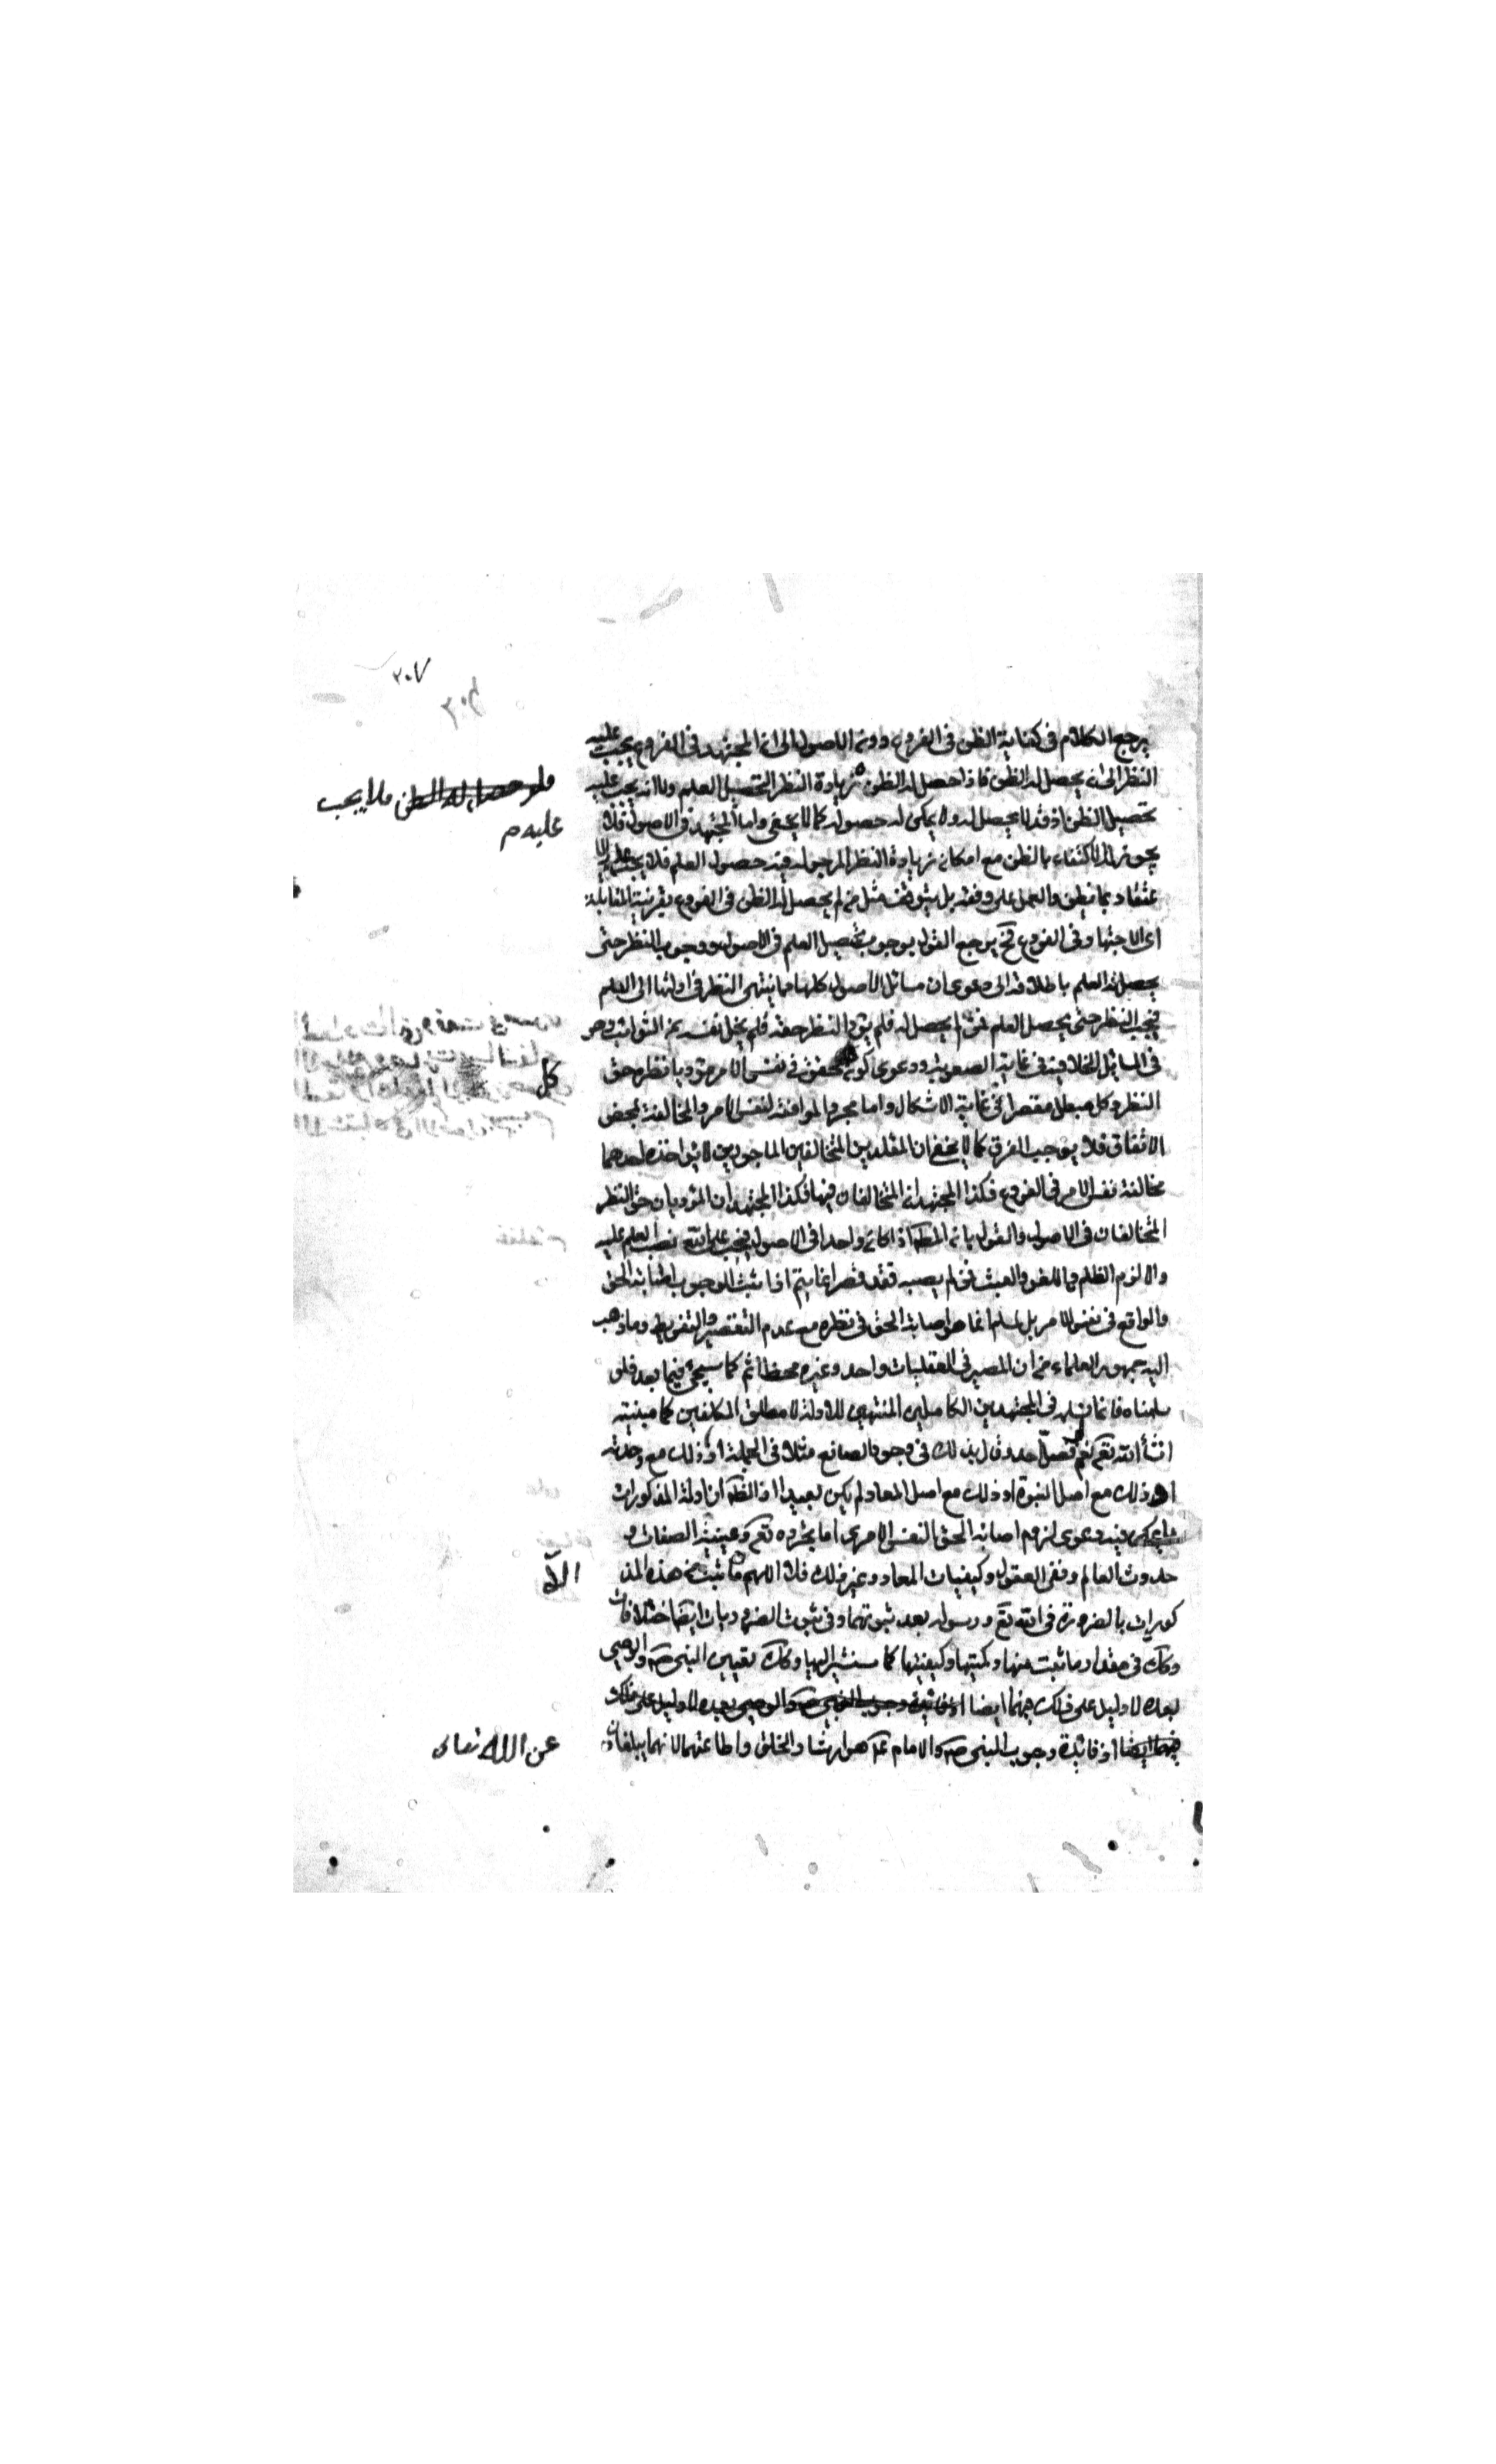 ٢٠٧
يرجع الكلام في كفاية الظن في الفروع دون الاصول الى ان المجتهد في الفروع يجب عليه
النظر الى ان يحصل له الظن فاذا حصل له الظن زيادة النظر لتحصيل العلم ولا انه يجب عليه
فلو حصل له الظن فلا يجب
عليه م
تحصيل الظن اذ قد لا يحصل له ولا يمكن له حصوله كما لا يخفى واما المجتهد في الاصول فلا
يجوز له الاكتفاء بالظن مع امكان زيادة النظر المرجو له فيه حصول العلم فلا يجب عليه الا
عتقاد بما يظن والعمل على وفقه بل يتوقف مثل من لم يحصل له الظن في الفروع بقرينة المقابلة
اى الاجتهاد في الفروع فح يرجع القول بوجوب تحصيل العلم في الاصول ووجوب النظر حتى
يحصل له العلم باطلاقه الى دعوى ان مسائل الاصول كلها مما ينتهى النظر في ادلتها الى العلم
فيجب النظر حتى يحصل العلم فمن لم يحصل له فلم يؤد النظر حقه فلم يخل نفسه من الشوائب وهو
في المسائل الخلافية في غاية الصعوبة ودعوى كون محقق في نفس الامر مؤديا نظره حق
كل
النظر وكل مبطل مقصرا في غاية الاشكال واما مجرد الموافقة لنفس الامر والمخالفة لمحض
الاتفاق فلا يوجب الفرق كما لا يخفى ان المقلدين المتخالفين الماجورين لا يؤاخذ احدهما
مخالفة نفس الامر في الفروع فكذا المجتهدان المتخالفان فيها فكذا المجتهدان المؤديان حق النظر
المتخالفان في الاصول والقول بانه المط اذا كان واحدا في الاصول فيجب على الله نصب العلم عليه
والا لزم الظلم واللغو والعبث فمن لم يصبه فقد قصر انما يتم اذا ثبت الوجوب اصابة الحق
والواقع في نفس الامر بل المسلم انما هو اصابة الحق في نظره مع عدم التقصير والتفريط وما ذهب
اليه جمهور العلماء من ان المصيب في العقليات واحد وغيره مخطا اثم كما سيجئ فيما بعد فلو
سلمناه فانما نسلمه في المجتهدين الكاملين المنتهين للادلة لا مطلق المكلفين كما سنبينه
انشأ الله تعم نعم لو فصل احد وقال بذلك في وجود الصانع مثلا في الجملة او ذلك مع وحدته
او ذلك مع اصل النبوة او ذلك مع اصل المعاد لم يكن بعيدا اذ الظ ان ادلة المذكورات
مما يمكن فيه دعوى لزوم اصابة الحق النفس الامرى اما تجرده تعم وعينية الصفات و
حدوث العالم ونفى العقول وكيفيات المعاد وغير ذلك فلا اللهم ما ثبت من هذه المذ
الا
كورات بالضرورة في الله تع ورسوله بعد ثبوتهما وفي ثبوت الضروريات ايضا اختلافات
وكك في مقدار ما ثبت منها وكميتها وكيفيتها كما سنشير اليها وكك تعيين النبى ص والوصى
بعده لا دليل على ذلك فيهما ايضا اذ فائدة وجوب النبى ص والوصى بعده لا دليل على ذلك
فيهما ايضا اذ فائدة وجوب النبى ص والامام عم هو ارشاد الخلق واطاعتهما لانهما يبلغان
عن الله تعالى